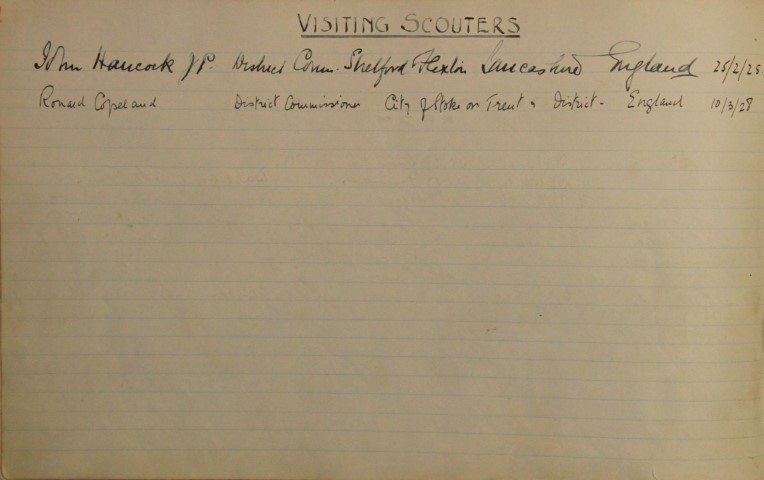 VISITING SCOUTERS
John Hancock J.P. District Comm. Stretford Lancashire England 25/2/28
Ronald Copeland District Commissioner City of Stoke on Trent & District - England 10/3/28